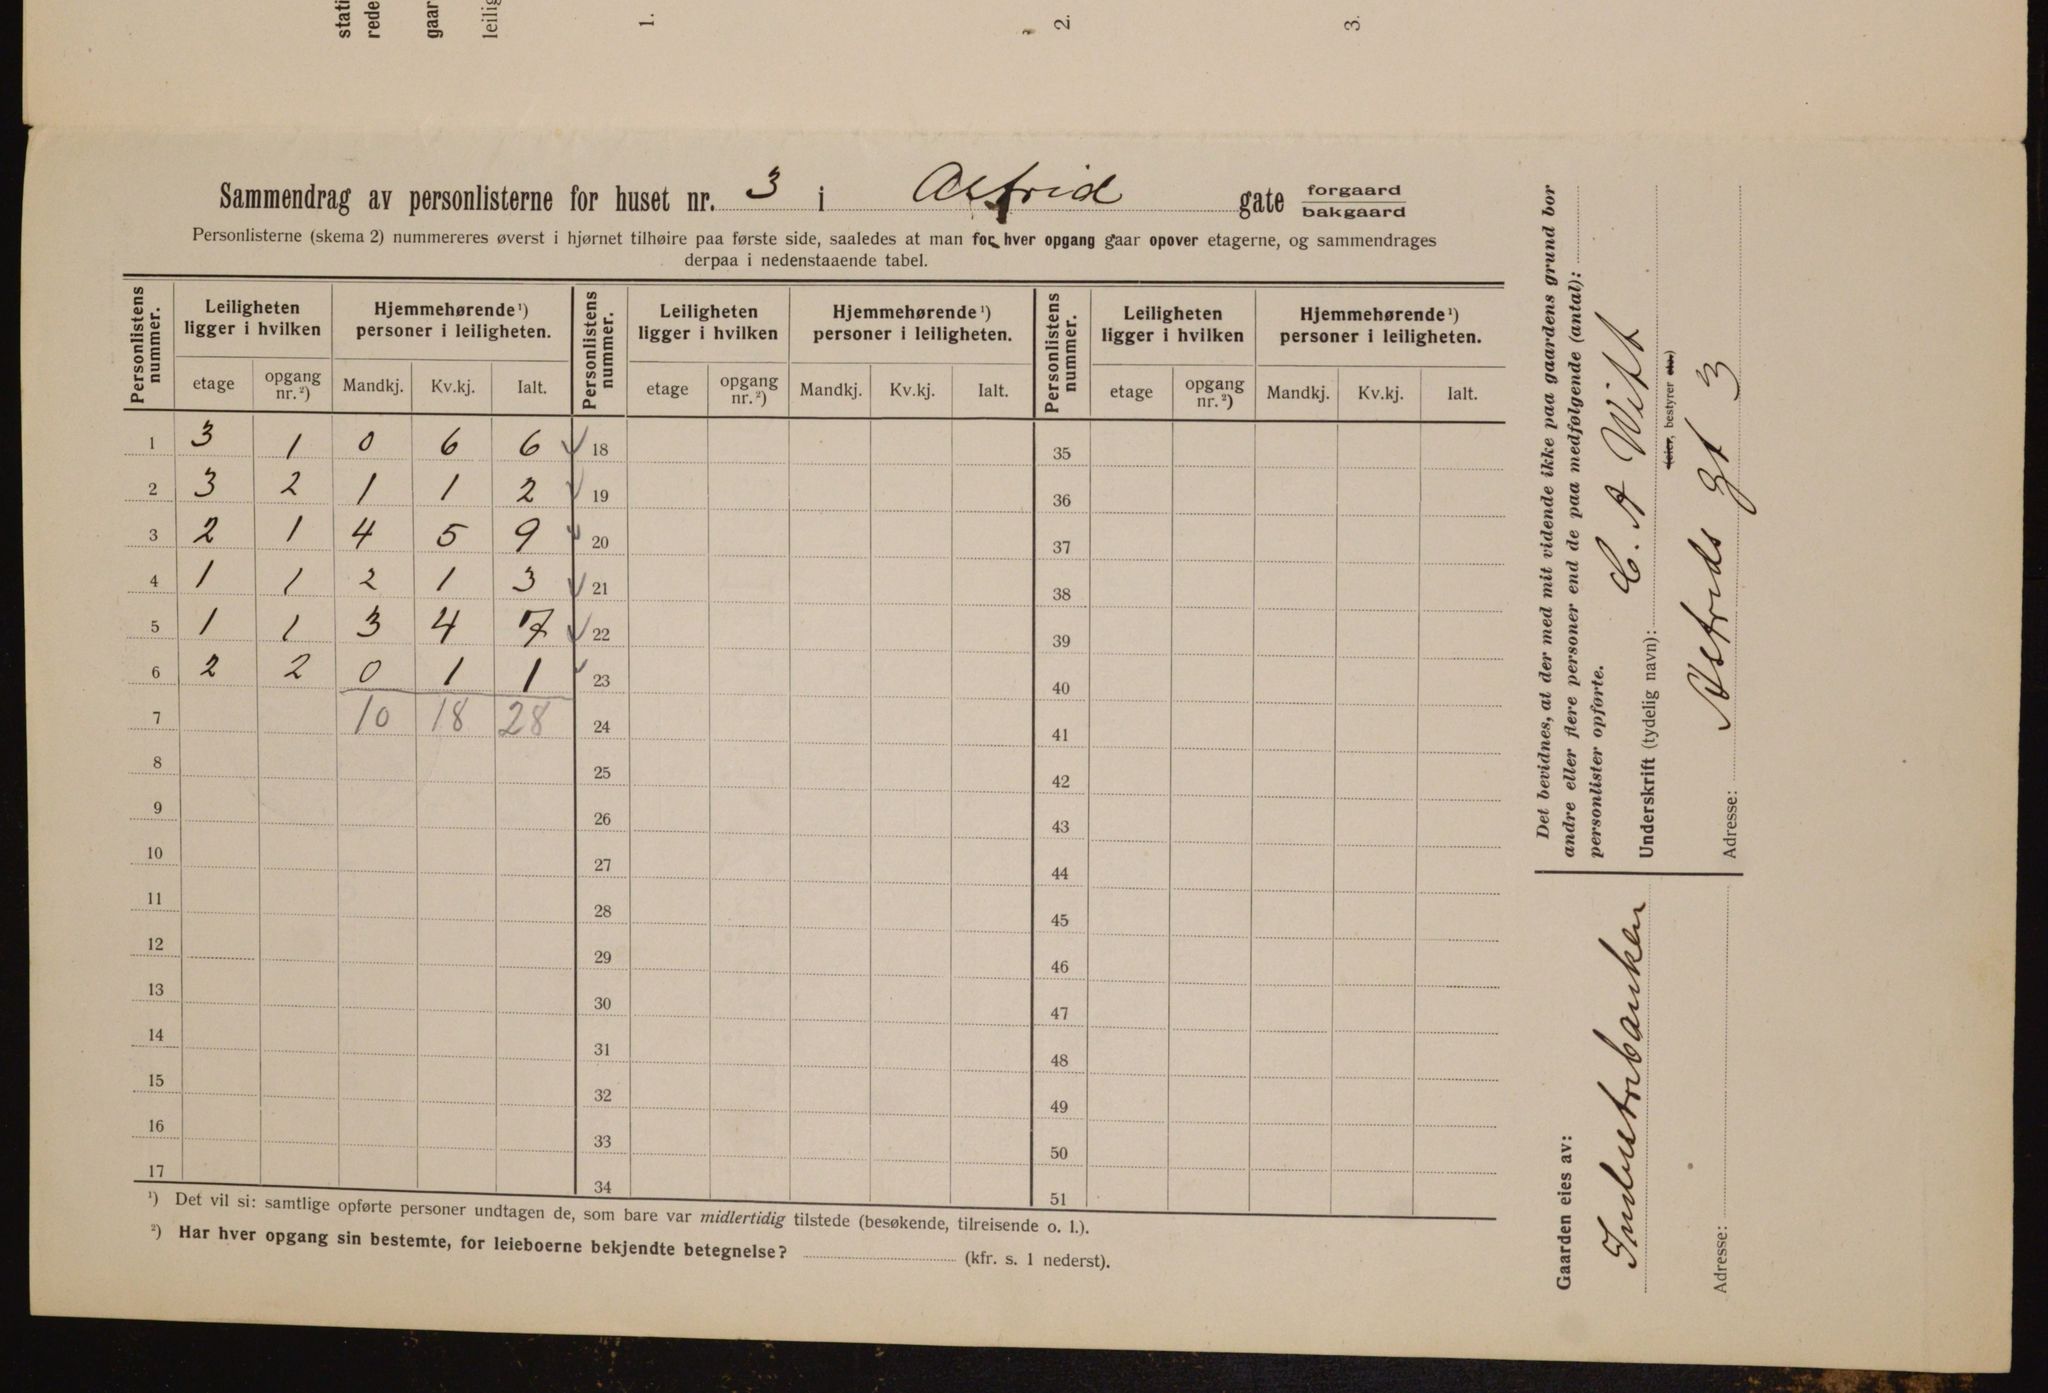 stati
rede
gaar
leilig
1.
2.
3.
Sammendrag av personlisterne for huset nr. 3 i Astrid gate forgaard bakgaard
Personlisterne (skema 2) nummereres øverst i hjørnet tilhøire paa første side, saaledes at man for hver opgang gaar opover etagerne, og sammendrages
derpaa i nedenstaaende tabel.
Personlistens nummer. Leiligheten ligger i hvilken Hjemmehørende¹) personer i leiligheten. Personlistens nummer. Leiligheten ligger i hvilken Hjemmehørende¹) personer i leiligheten. Personlistens nummer. Leiligheten ligger i hvilken Hjemmehørende¹) personer i leiligheten.
etage opgang nr.²) Mandkj. Kv.kj. Ialt. etage opgang nr.²) Mandkj. Kv.kj. Ialt. etage opgang nr.²) Mandkj. Kv.kj. Ialt.
1 3 1 0 6 6 18 35
2 3 2 1 1 2 19 36
3 2 1 4 5 9 20 37
4 1 1 2 1 3 21 38
5 1 1 3 4 7 22 39
6 2 2 0 1 1 23 40
7 10 18 28 24 41
8 25 42
9 26 43
10 27 44
11 28 45
12 29 46
13 30 47
14 31 48
15 32 49
16 33 50
17 34 51
¹) Det vil si: samtlige opførte personer undtagen de, som bare var midlertidig tilstede (besøkende, tilreisende o. l.).
²) Har hver opgang sin bestemte, for leieboerne bekjendte betegnelse? (kfr. s. 1 nederst).
Det bevidnes, at der med mit vidende ikke paa gaardens grund bor
andre eller flere personer end de paa medfølgende (antal):
personlister opførte.
Underskrift (tydelig navn): C. A Witt
(eier, bestyrer etc.)
Adresse: Astrids gt 3
Gaarden eies av: Industribanken
Adresse: